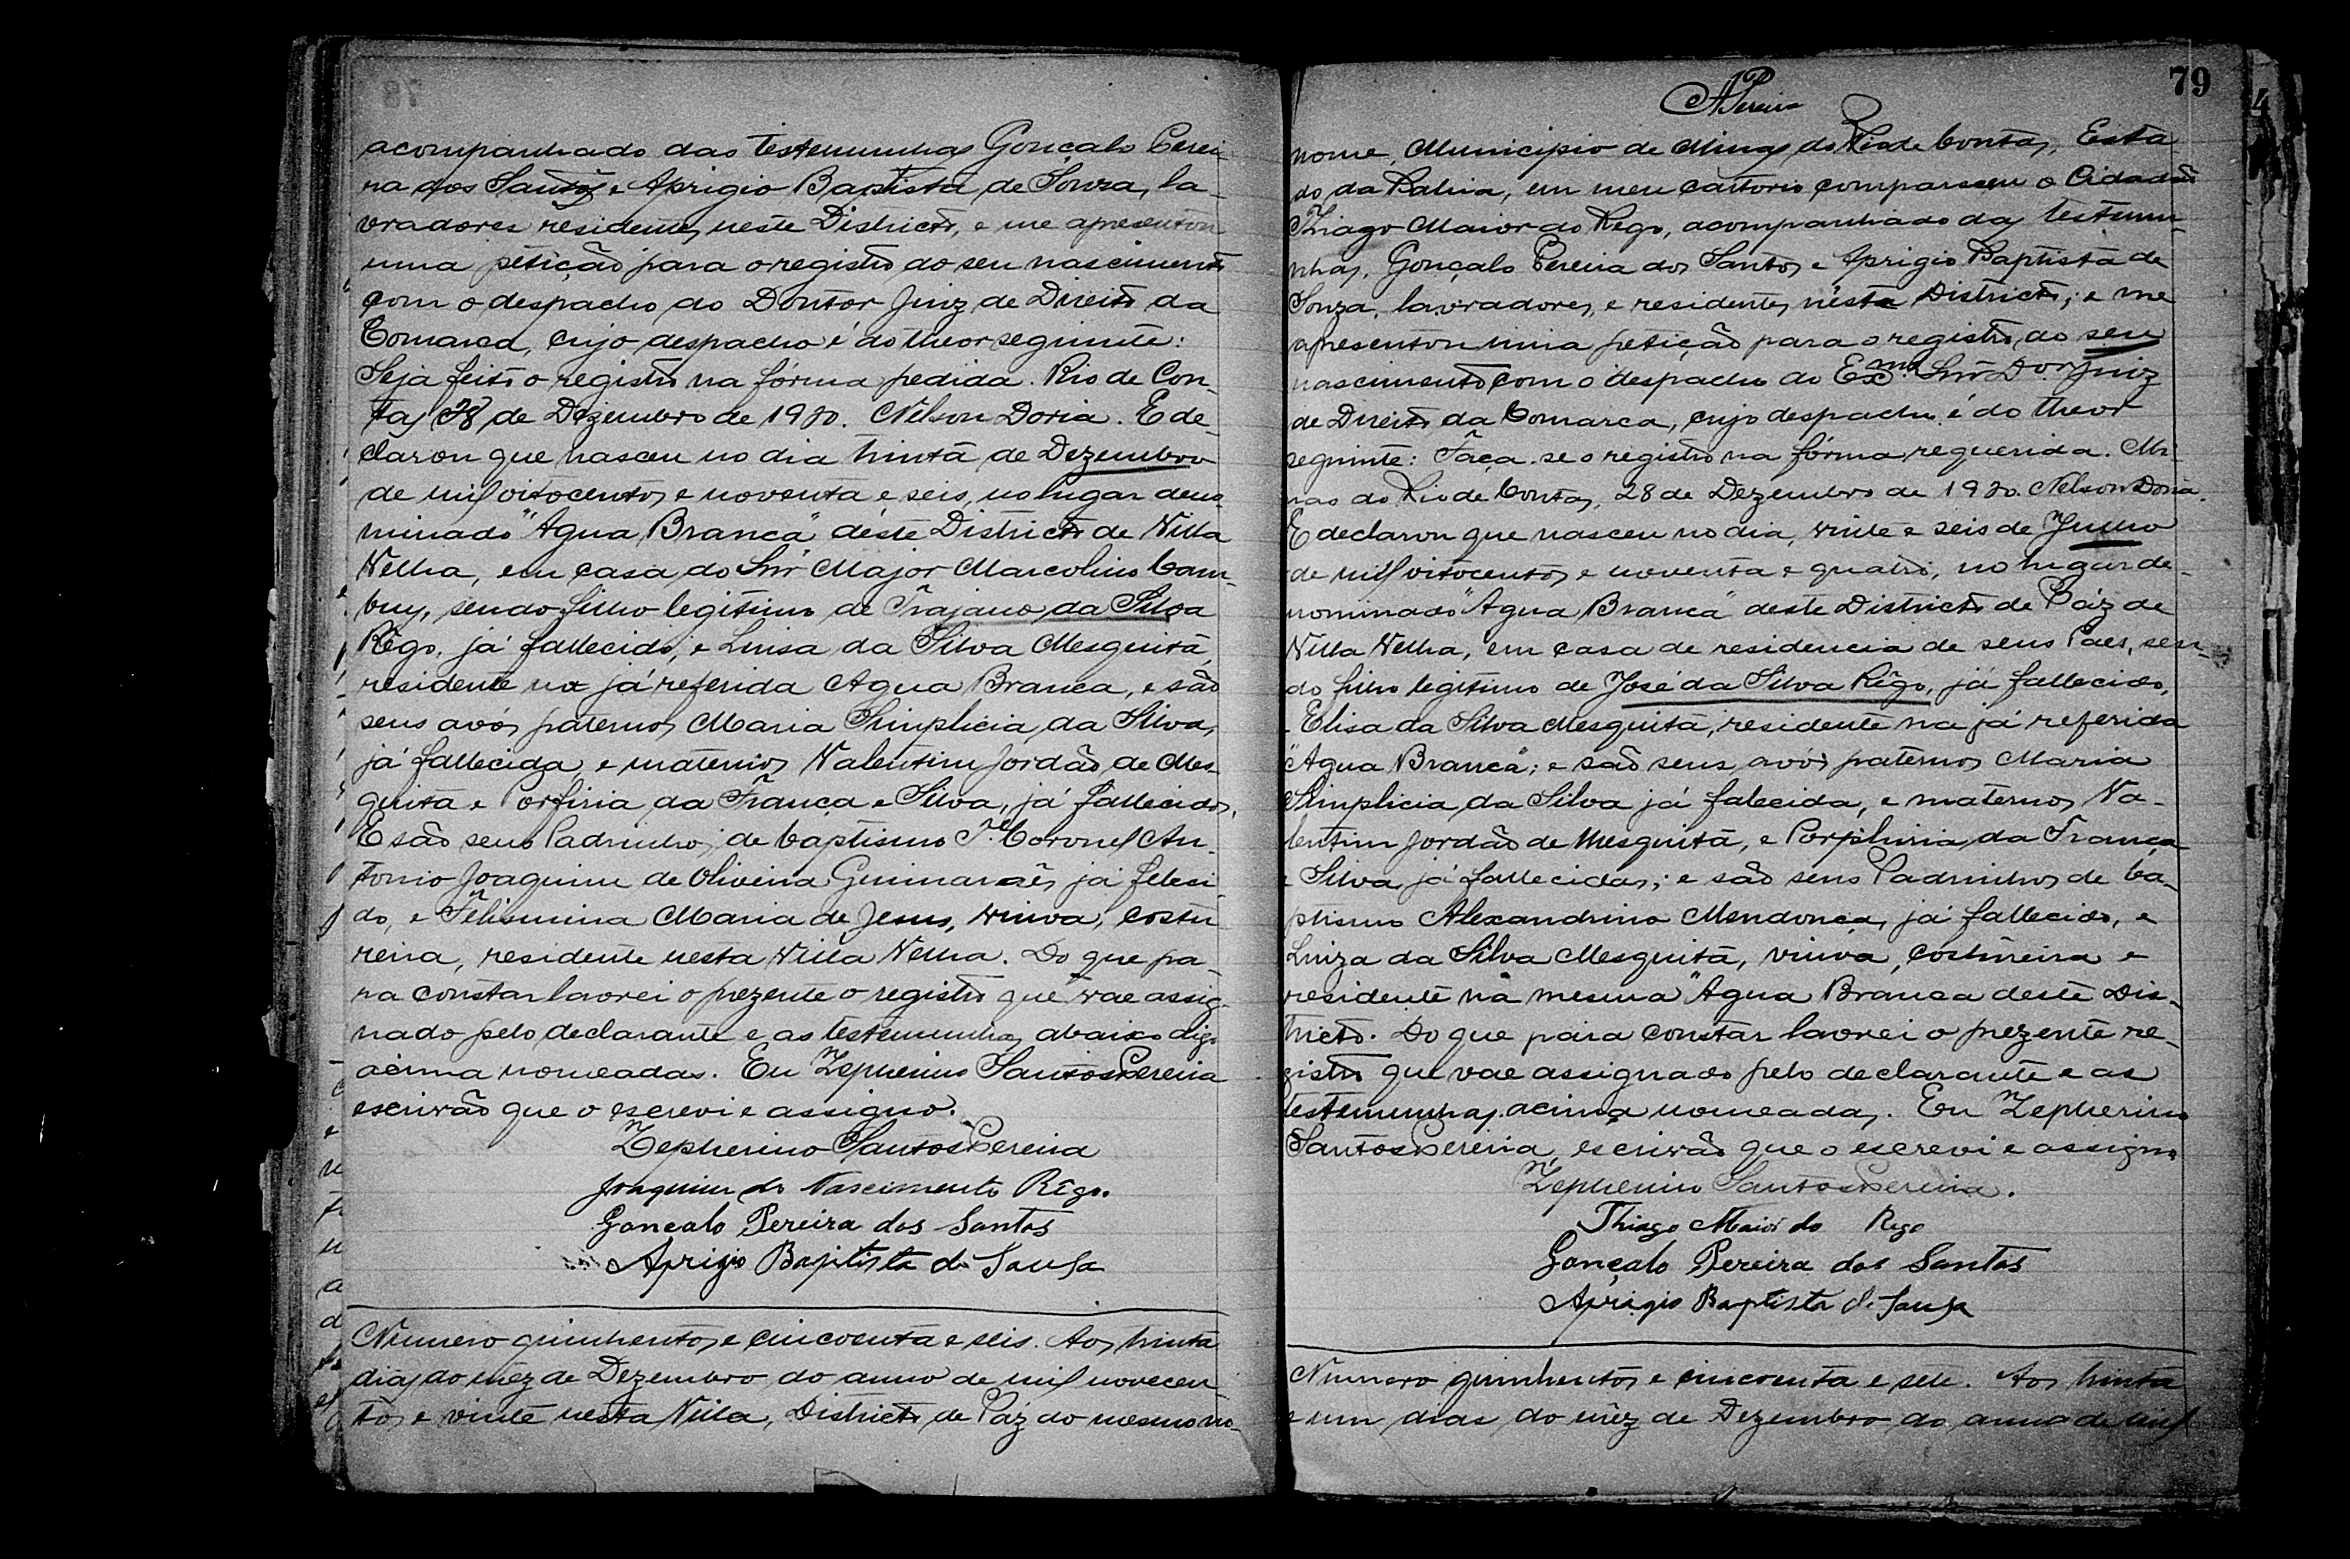 acompanhado das testemunhas Gonçalo Perei-
ra dos Santos e Aprigio Baptista de Souza, la-
vradores residentes neste Districto, e me apresentou
uma petição para o registro do seu nascimento
com o despacho do Doutor Juiz de Direito da
Comarca, cujo despacho é do theor seguinte:
Seja feito o registro na fórma pedida. Rio de Con-
tas 28 de Dezembro de 1920. Nelson Doria. E de-
clarou que nasceu no dia trinta de Dezembro
de mil oitocentos e noventa e seis, no lugar deno-
minado "Agua Branca" déste Districto de Villa
Velha, em casa do Snr Major Marcolino Cam-
buy, sendo filho legitimo de Trajano da Silva
Rêgo, já fallecido, e Luisa da Silva Mesquita,
residente na já referida Agua Branca, e são
seus avós paternos Maria Simplicia da Silva,
já fallecida, e maternos Valentim Jordão de Mes-
quita e Porfiria da França e Silva, já fallecidos.
E são seus Padrinhos de baptismo Te. Coronel An-
tonio Joaquim de Oliveira Guimarães, já feleci-
do, e Felismina Maria de Jesus, viuva, costu
reira, residente nesta Villa Velha. Do que pa-
ra constar lavrei o prezente o registro que vae assig-
nado pelo declarante e as testemunhas abaixo digo
acima nomeadas. Eu Zepherino Santos Pereira
escrivão que o escrevi e assigno.
Zepherino Santos Pereira
Joaquim do Nascimento Rêgo.
Gonçalo Pereira dos Santos
Aprigio Baptista de Sousa
Numero quinhentos e cincoenta e seis. Aos trinta
dias do mêz de Dezembro do anno de mil novecen
tos e vinte nesta Villa, Districto de Paz do mesmo no-
79
APereira
nome, Municipio de Minas do Rio de Contas, Esta
do da Bahia, em meu cartorio compareceu o Cidadão
Thiago Maior do Rego, acompanhado das testemu-
nhas, Gonçalo Pereira dos Santos e Aprigio Baptista de
Souza, lavradores, e residentes nésta Districto; e me
apresentou uma petição para o registro do seu
nascimento com o despacho do Exmo. Snr. Dor. Juiz
de Direito da Comarca, cujo despacho é do theor
seguinte: Faça-se o registro na fórma requerida. Mi-
nas do Rio de Contas, 28 de Dezembro de 1920. Nelson Doria.
E declarou que nasceu no dia, vinte e seis de Julho
de mil oitocentos e noventa e quatro, no lugar de-
nominado "Agua Branca" deste Districto de Páz de
Villa Velha, em casa de residencia de seus Paes, sen-
do filho legitimo de José da Silva Rêgo, já fallecido,
e Elisa da Silva Mesquita, residente na já referida
"Agua Branca"; e são seus avós paternos Maria
Simplicia da Silva já falecida, e maternos Va-
lentim Jordão de Mesquita, e Porphiria da França
e Silva, já fallecidos; e são seus Padrinhos de ba-
ptismo Alexandrino Mendonça, já fallecido, e
Luiza da Silva Mesquita, viuva, costureira e
residente na mesma "Agua Branca deste Dis-
tricto. Do que para constar lavrei o prezente re-
gistro que vae assignado pelo declarante e as
testemunhas acima nomeadas. Eu Zepherino
Santos Pereira, escrivão que o escrevi e assigno
Zepherino Santos Pereira.
Thiago Maior do Rego
Gonçalo Pereira dos Santos
Aprigio Baptista de Sousa
Numero quinhentos e cincoenta e sete. Aos trinta
e um dias do mêz de Dezembro do anno de mil